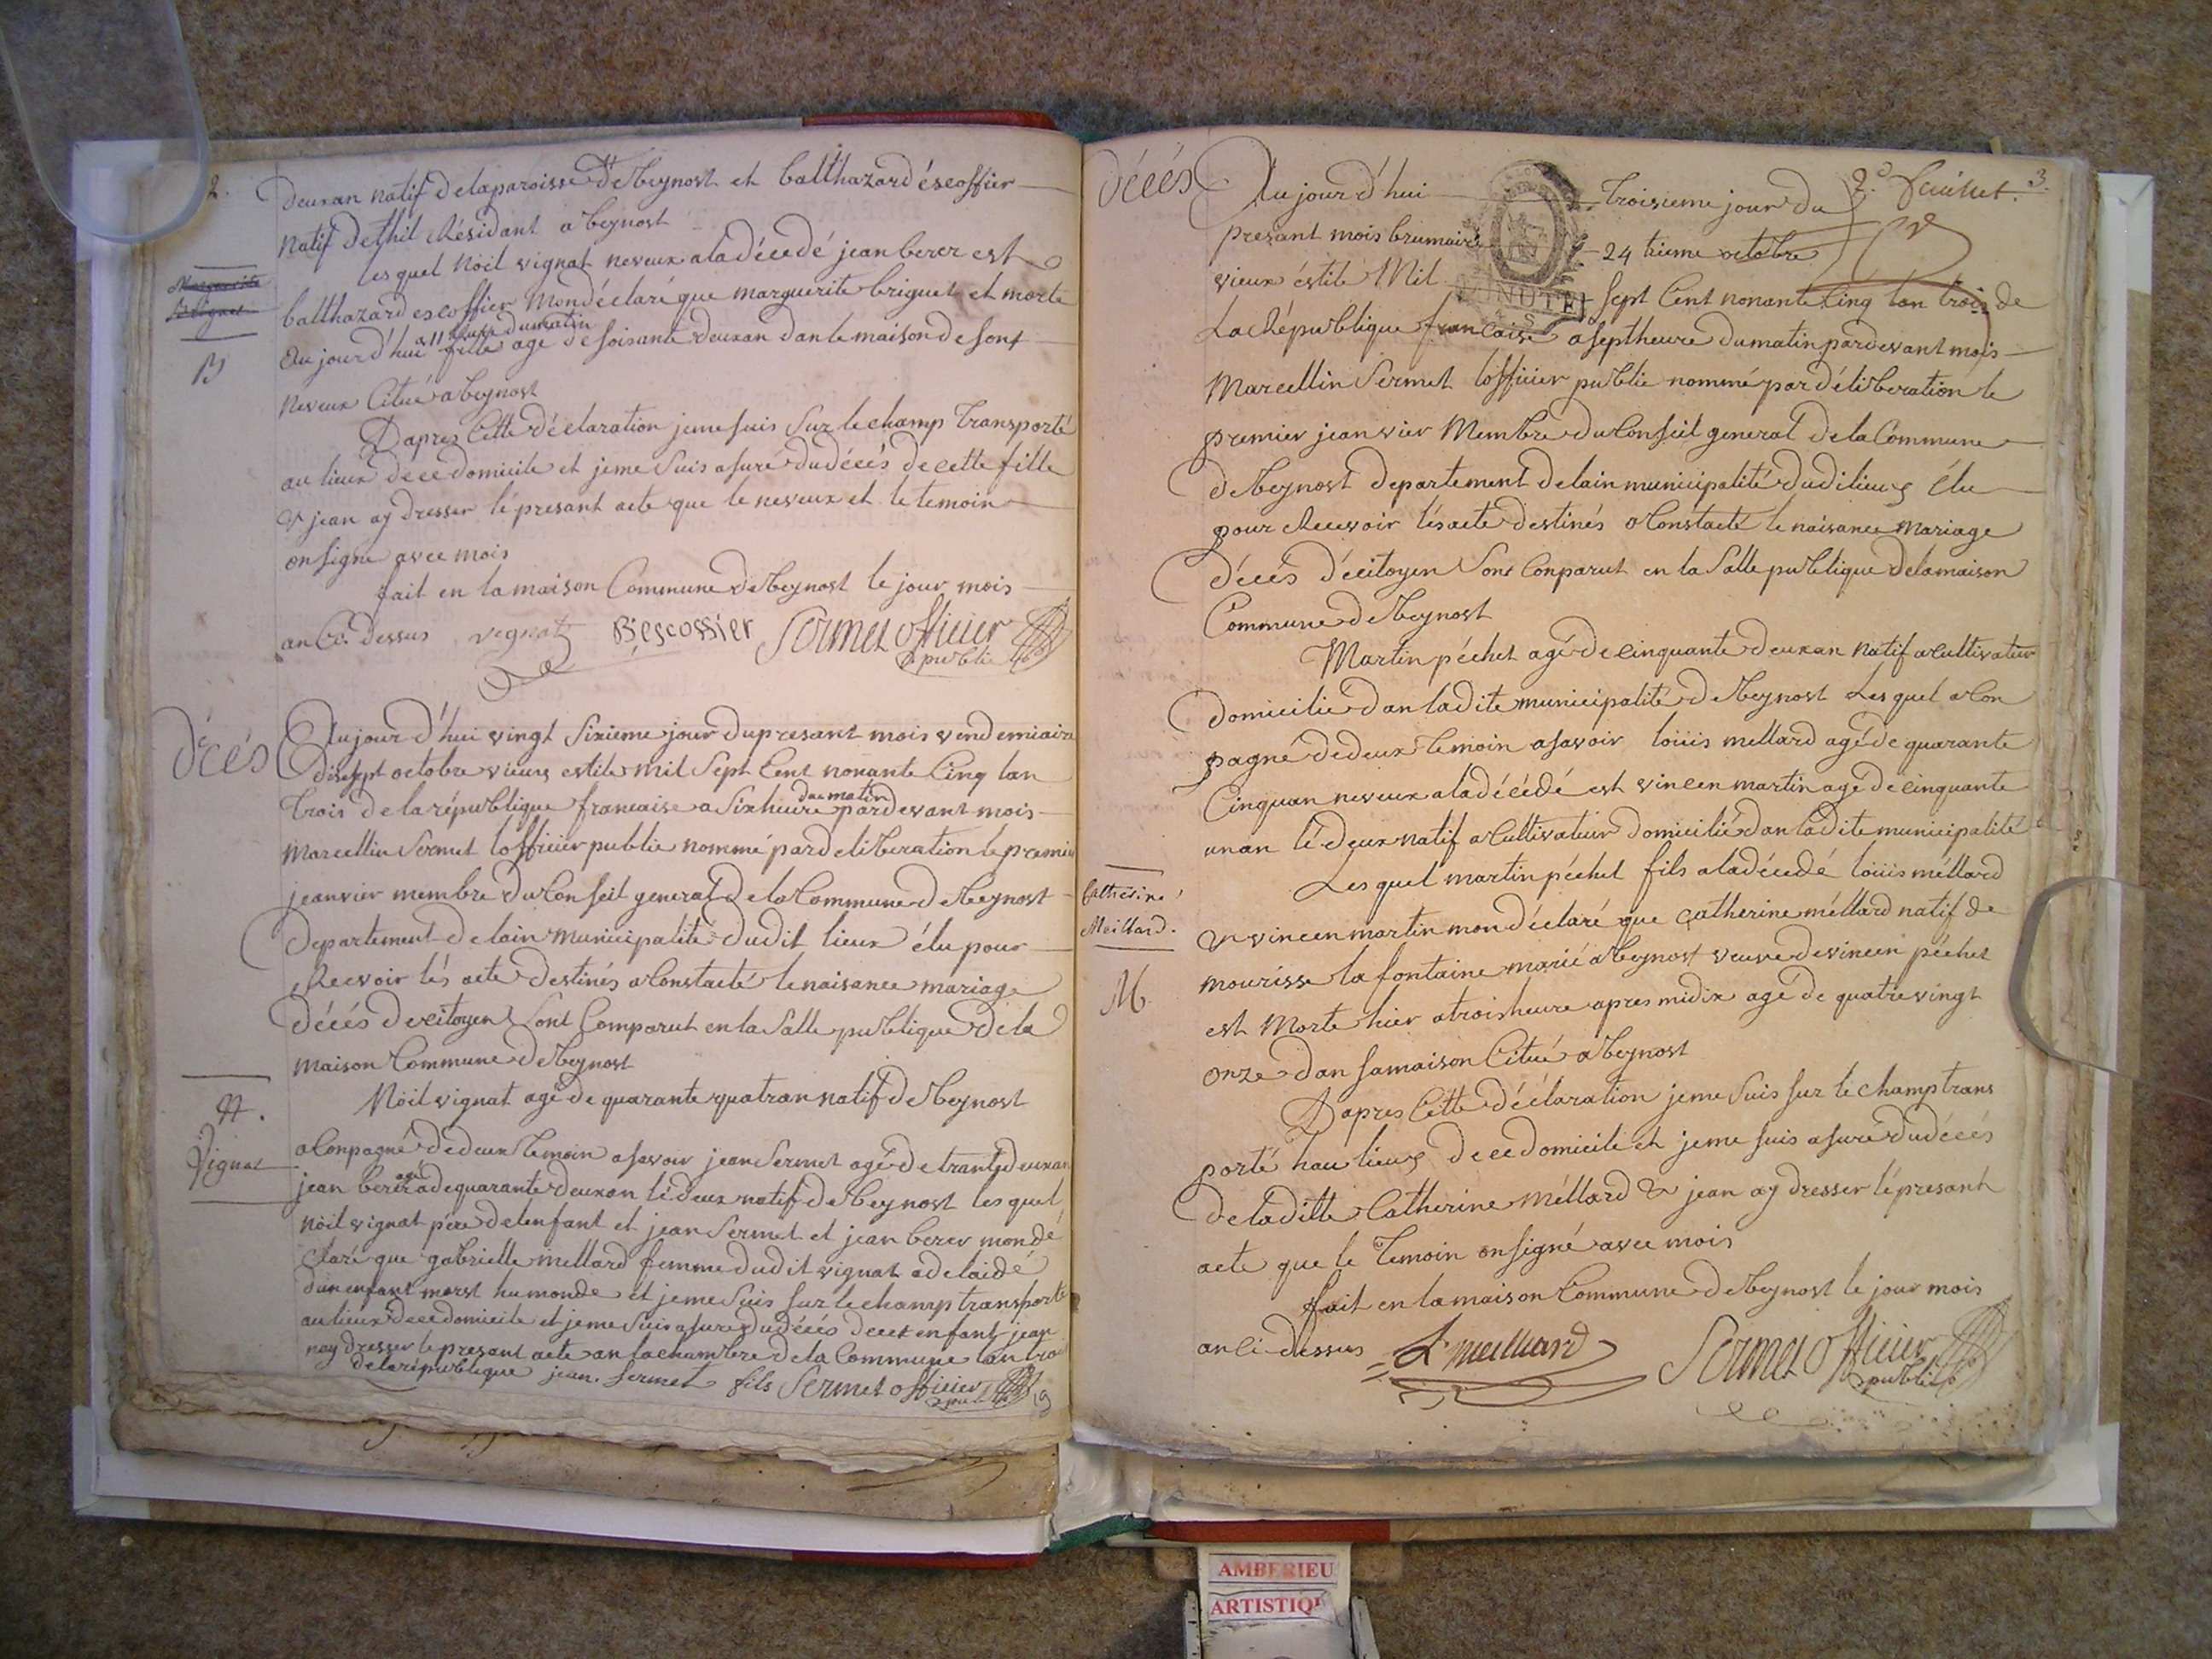 2.
deuxan natif delaparoisse de beynost et balthazard éscoffier
natif dethil Résidant a beynost
les quel Nöil vignat neveux aladécedé jean berer est
balthazard escoffier Mondéclaré que marguerite briguet et morte
a 11 heure dumatin
Aujourd'hui fille agé de soisante deuxan dan le maison de sont
neveux Citué a beynost
B
Dapres Cette déclaration jeme suis sur le champ Transporté
au lieux de ce domicile et jeme suis asuré dudécés de cette fille
& jean ay dresser lé presant acte que le neveux et le temoin
on signe avec mois
fait en la maison Commune de beynost le jour mois
an Ci dessus vignat B:escossier Sermet officier
public
décés
Aujourd'hui vingt sixieme jour dupresant mois vendemiaire
disept octobre vieux estile mil sept Cent nonante Cinq lan
dumatin
trois de la république francaise a six heure pardevant mois
Marcellin Sermet l'officier public nommé pardeliberation le premier
jeanvier membre du Conseil general de la Commune de beynost
Departement de lain municipalité dudit lieux élu pour
Recevoir lés acte destinés a Constacté le naisance mariage
décés de citoyen sont Comparut en la Salle publique de la
maison Commune de beynost
Nöil vignat agé de quarante quatran natif de beynost
N.
Vignat
a Conpagné de deux temoin asavoir jean Sermet agé de trante deuxan
agé
jean berer de quarante deuxan lé deux natif de beynost les quel
nöil vignat pére de lenfant et jean Sermet et jean berer mondé
claré que gabrielle mellard femme dudit vignat adelaidé
dun enfant morst hu monde et jeme suis sur le champ transporté
au lieux de ce domicile et jeme suis asuré dudécés de cet enfant jean
nay dresser le presant acte an la chambre de la Commune lan trois
de la république jean. Sermet fils Sermet officier
public
décés
2.e feuillet. 3.
Aujourd'hui troisieme jour du
presant mois brumaire 24 tieme octobre
vieux éstile Mil sept Cent nonante Cinq lan trois de
MINUTE
La République francaise a septheure dumatin pardevant mois
Marcellin Sermet l'officier public nommé par déliberation le
premier jeanvier Membre du Conseil general de la Commune
de beynost departement de lain municipalité dudi lieux élu
pour Recevoir lés acte destinés a Constacté le naisance Mariage
décés décitoyen sont Conparut en la Salle publique de la maison
Commune de beynost
Martin péchet agé de cinquante deuxan natif a cultivateur
domicilié dan ladite municipalité de beynost Les quel a Con
pagné de deux temoin asavoir loüis mellard agé de quarante
Cinquan neveux aladécédé est vincen martin agé de cinquante
unan lé deux natif a Cultivateur domicilié dan ladite municipalité
Les quel martin péchet fils aladécedé loüis méllard
Catherine
Meillard.
& vincen martin mon déclaré que catherine méllard natif de
mourisse la fontaine marié a beynost veuve de vincen péchet
M.
est Morte hier a trois heure apres midix agé de quatre vingt
onze dan sa maison Citué a beynost
Dapres Cette déclaration jeme suis sur le champ trans
porté hau lieux de ce domicile et jeme suis asuré dudécés
de laditte Catherine méllard & jean ay dresser lé presant
acte que le Temoin onsigné avec mois
fait en la maison Commune de beynost le jour mois
an Ci-dessus L. meilliard Sermet officier
public
AMBERIEU
ARTISTIQ